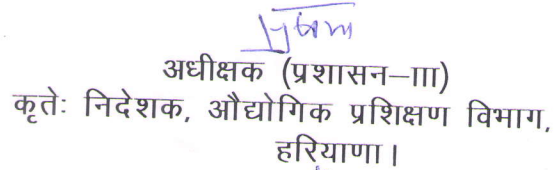 अधीक्षक (प्रशासन–III)
कृतेः निदेशक, औद्योगिक प्रशिक्षण विभाग,
हरियाणा।